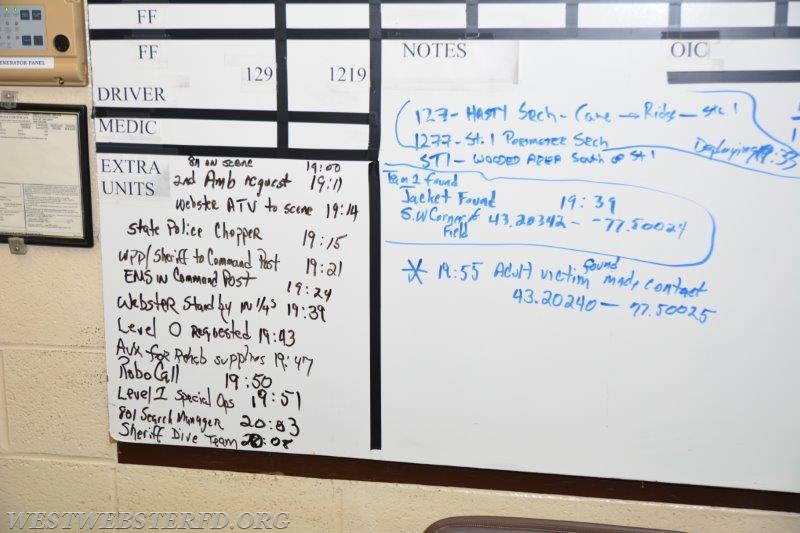 GENERATOR PANEL
FF
FF
DRIVER
129
1219
MEDIC
EXTRA
UNITS
on scene 19:00
2nd Amb request 19:11
Webster ATV to scene 19:14
State Police Chopper 19:15
WPP/Sheriff to Command Post 19:21
EMS in Command Post 19:24
Webster Stand by in 1/4s 19:39
Level 0 Requested 19:43
Aux for Rehab supplies 19:47
RoboCall 19:50
Level I Special Ops 19:51
801 Search Manager 20:03
Sheriff Dive Team 20:08
NOTES
OIC
127- HASTY Sech - Cane → Ridge - St. 1
1277- St. 1 Perimeter Sech
ST1 - WOODED AREA South of St 1
Deploying 19:33
Team 1 found
Jacket Found 19:39
S.W Corner of Field 43.20342 - -77.50024
* 19:55 Adult victim found made contact
43.20240 - 77.50025
WESTWEBSTERFD.ORG